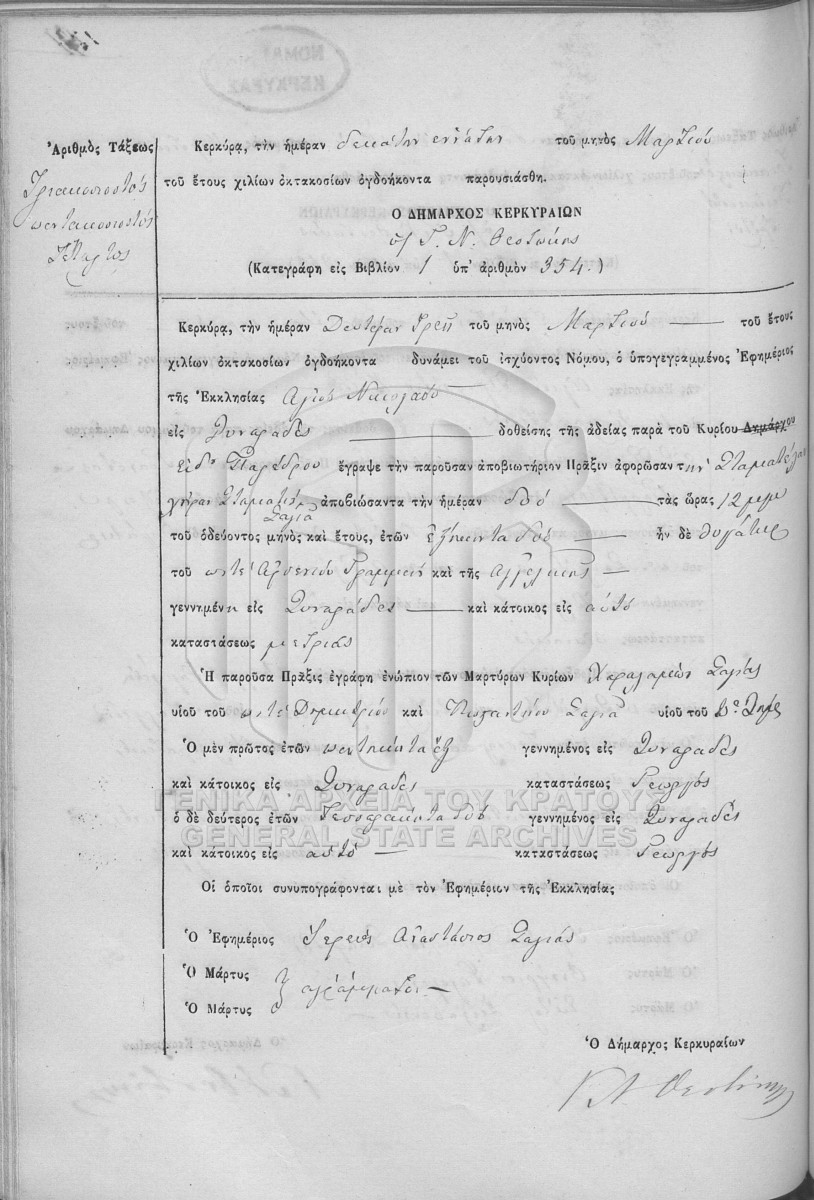 ΝΟΜΑ
ΚΕΡΚΥΡΑΣ
Ἀριθμὸς Τάξεως
Τριακοσιοστός
πεντηκοστός
Τέταρτος
Κερκύρᾳ, τὴν ἡμέραν δεκάτην ἐννάτην τοῦ μηνὸς Μαρτίου
τοῦ ἔτους χιλίων ὀκτακοσίων ὀγδοήκοντα παρουσιάσθη.
Ο ΔΗΜΑΡΧΟΣ ΚΕΡΚΥΡΑΙΩΝ
Γ. Ν. Θεοτόκης
(Κατεγράφη εἰς Βιβλίον 1 ὑπ' ἀριθμὸν 354.)
Κερκύρᾳ, τὴν ἡμέραν Δευτέραν τρεῖς τοῦ μηνὸς Μαρτίου τοῦ ἔτους
χιλίων ὀκτακοσίων ὀγδοήκοντα δυνάμει τοῦ ἰσχύοντος Νόμου, ὁ ὑπογεγραμμένος Ἐφημέριος
τῆς Ἐκκλησίας Ἁγίου Νικολάου
εἰς Συναράδες δοθείσης τῆς ἀδείας παρὰ τοῦ Κυρίου Δημάρχου
Εἰδ. Παρέδρου ἔγραψε τὴν παροῦσαν ἀποβιωτήριον Πρᾶξιν ἀφορῶσαν τὴν Σταματέλαν
χήραν Σταματίου ἀποβιώσαντα τὴν ἡμέραν δύο τὰς ὥρας 12 μεμ
Σαγιᾶ
τοῦ ὁδεύοντος μηνὸς καὶ ἔτους, ἐτῶν ἑξήκοντα δύο ἦν δὲ θυγάτηρ
τοῦ ποτὲ Ἀρσενίου Γραμμένου καὶ τῆς Ἀγγελικῆς
γεννημένη εἰς Συναράδες καὶ κάτοικος εἰς αὐτό
καταστάσεως μετρίας
Ἡ παροῦσα Πρᾶξις ἐγράφη ἐνώπιον τῶν Μαρτύρων Κυρίων Χαραλάμπου Σαγιᾶς
υἱοῦ τοῦ ποτὲ Δημητρίου καὶ Κωσταντίνου Σαγιᾶ υἱοῦ τοῦ
Ὁ μὲν πρῶτος ἐτῶν πεντήκοντα ἕξ γεννημένος εἰς Συναράδες
καὶ κάτοικος εἰς Συναράδες καταστάσεως Γεωργός
ὁ δὲ δεύτερος ἐτῶν Τεσσαράκοντα δύο γεννημένος εἰς Συναράδες
καὶ κάτοικος εἰς αὐτό καταστάσεως Γεωργός
Οἱ ὁποῖοι συνυπογράφονται μὲ τὸν Ἐφημέριον τῆς Ἐκκλησίας
Ὁ Ἐφημέριος Ἱερεύς Ἀναστάσιος Σαγιάς
Ὁ Μάρτυς
ἀγράμματοι
Ὁ Μάρτυς
Ὁ Δήμαρχος Κερκυραίων
Γ Ν Θεοτόκης
ΓΕΝΙΚΑ ΑΡΧΕΙΑ ΤΟΥ ΚΡΑΤΟΥΣ
GENERAL STATE ARCHIVES